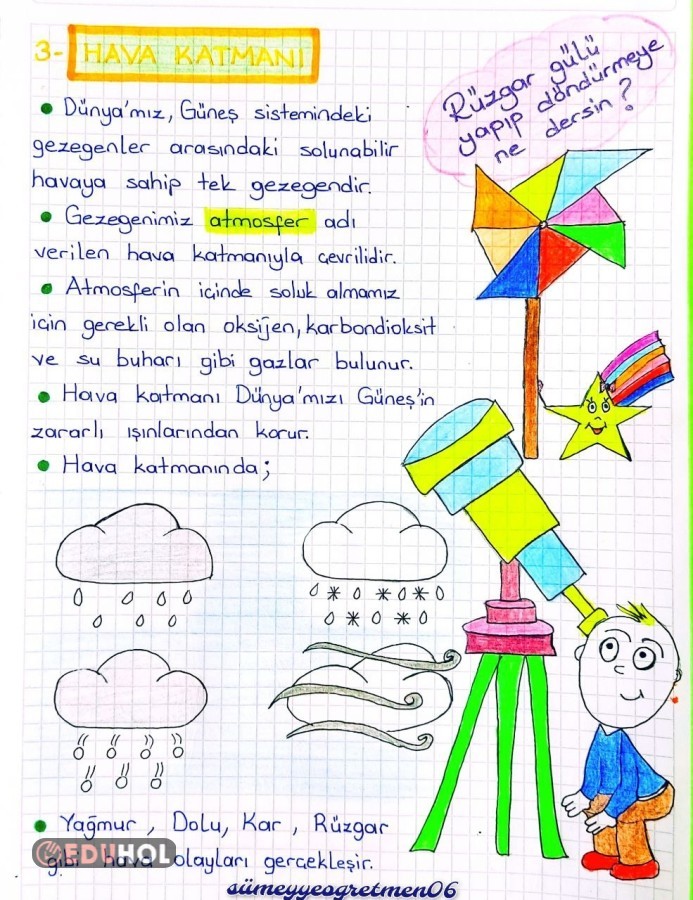 3- HAVA KATMANI
Rüzgar gülü
yapıp döndürmeye
ne dersin?
• Dünya'mız, Güneş sistemindeki
gezegenler arasındaki solunabilir
havaya sahip tek gezegendir.
• Gezegenimiz atmosfer adı
verilen hava katmanıyla çevrilidir.
• Atmosfer'in içinde soluk almamız
için gerekli olan oksijen, karbondioksit
ve su buharı gibi gazlar bulunur.
• Hava katmanı Dünya'mızı Güneş'in
zararlı ışınlarından korur.
• Hava katmanında;
• Yağmur, Dolu, Kar, Rüzgar
gibi hava olayları gerçekleşir.
EDUHOL
sümeyyeogretmen06